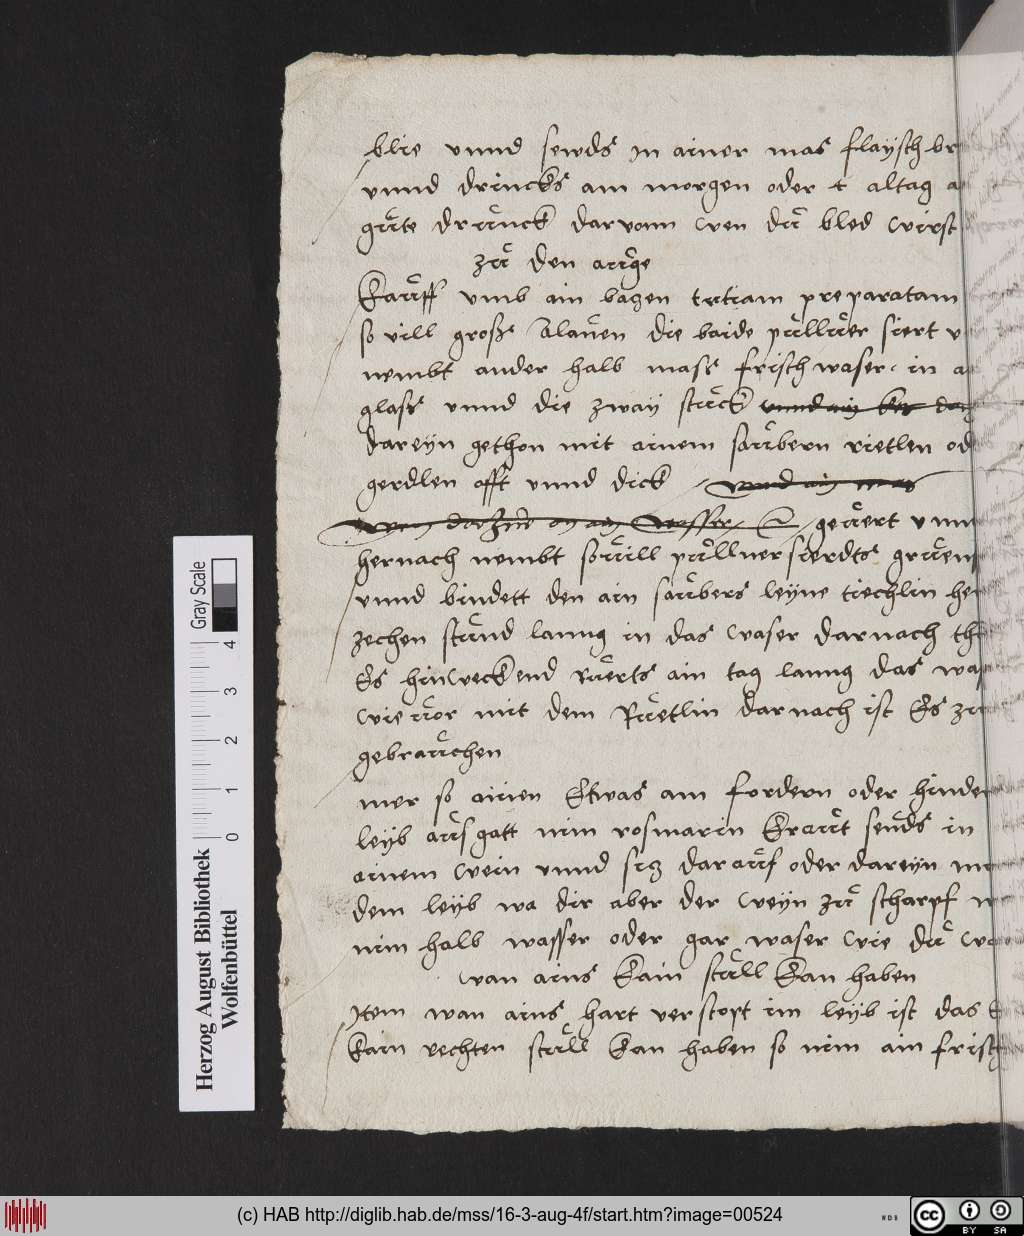 blie vnnd sewds in ainer mas flaysch br
vnnd drincks am morgen oder altag a
guͦte druͤnck daruonn wen duͤ bled wirst
zuͦ den auͤge
kauͤff vmb ain bazen tutiam preparatam
so vill groß Alauͤen die baide puͤlluͤer siert v
nembt ander halb mass frisch waser in a
glass vnnd die zway stuͤck
dareyn gethon mit ainem sauͤbern rietlen od
gerdlen offt vnnd dick
geruͤert vnn
hernach nembt souͤill puͤlluer
vnnd bindett den ain sauͤbers leyne tiechlin he
zechen stuͤnd lanng in das waser darnach th
Es hinweckend Ruͤerts ain tag lanng das wa
wie uͤor mit dem Ruͤetlin darnach ist Es zu
gebrauͤchen
mer so ainen Etwas am fordern oder hinder
leyb auͤsgatt nim rosmarin krauͤt seuds in
ainem wein vnnd siz darauͤf oder dareyn mi
dem leyb wa dir aber der weyn zuͦ scharpf w
nim halb wasser oder gar waser wie duͤ w
wan ains kain stuͤll kan haben
Item wan ains hart verstopt im leyb ist das
kain rechten stuͤll kan haben so nim ain frisch
Herzog August Bibliothek
Wolfenbüttel
Gray Scale
0 1 2 3 4
(c) HAB http://diglib.hab.de/mss/16-3-aug-4f/start.htm?image=00524
WDB
cc BY SA